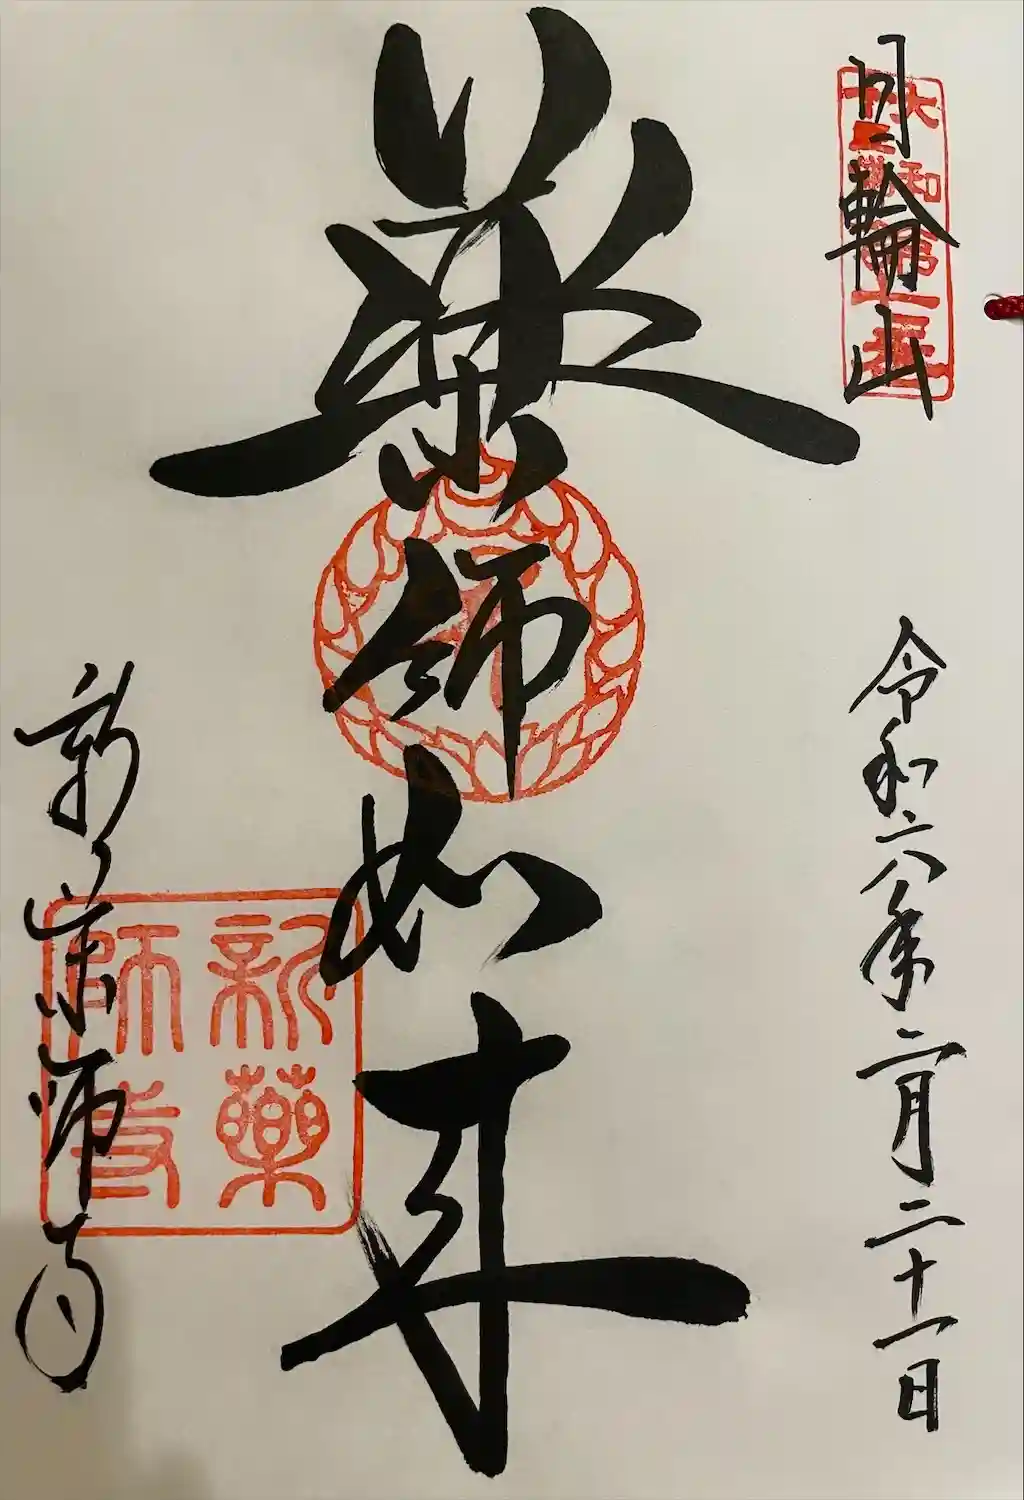 日輪山
大和
十三佛
令和六年二月二十一日
薬師如来
新薬師寺
新藥
師寺